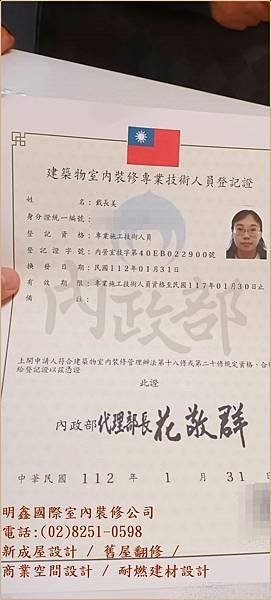 建築物室內裝修專業技術人員登記證
姓名：戴長美
身分證統一編號：
登記資格：專業施工技術人員
登記證字號：內營室技字第40EB022900號
換發日期：民國112年01月31日
有效期限：專業施工技術人員資格至民國117年01月30日止
備註：
內政部
上開申請人符合建築物室內裝修管理辦法第十八條或第二十條規定資格、合
給登記證以茲憑證
此證
內政部代理部長花敬群
中華民國 112 年 1 月 31 日
明鑫國際室內裝修公司
電話:(02)8251-0598
新成屋設計 / 舊屋翻修 /
商業空間設計 / 耐燃建材設計